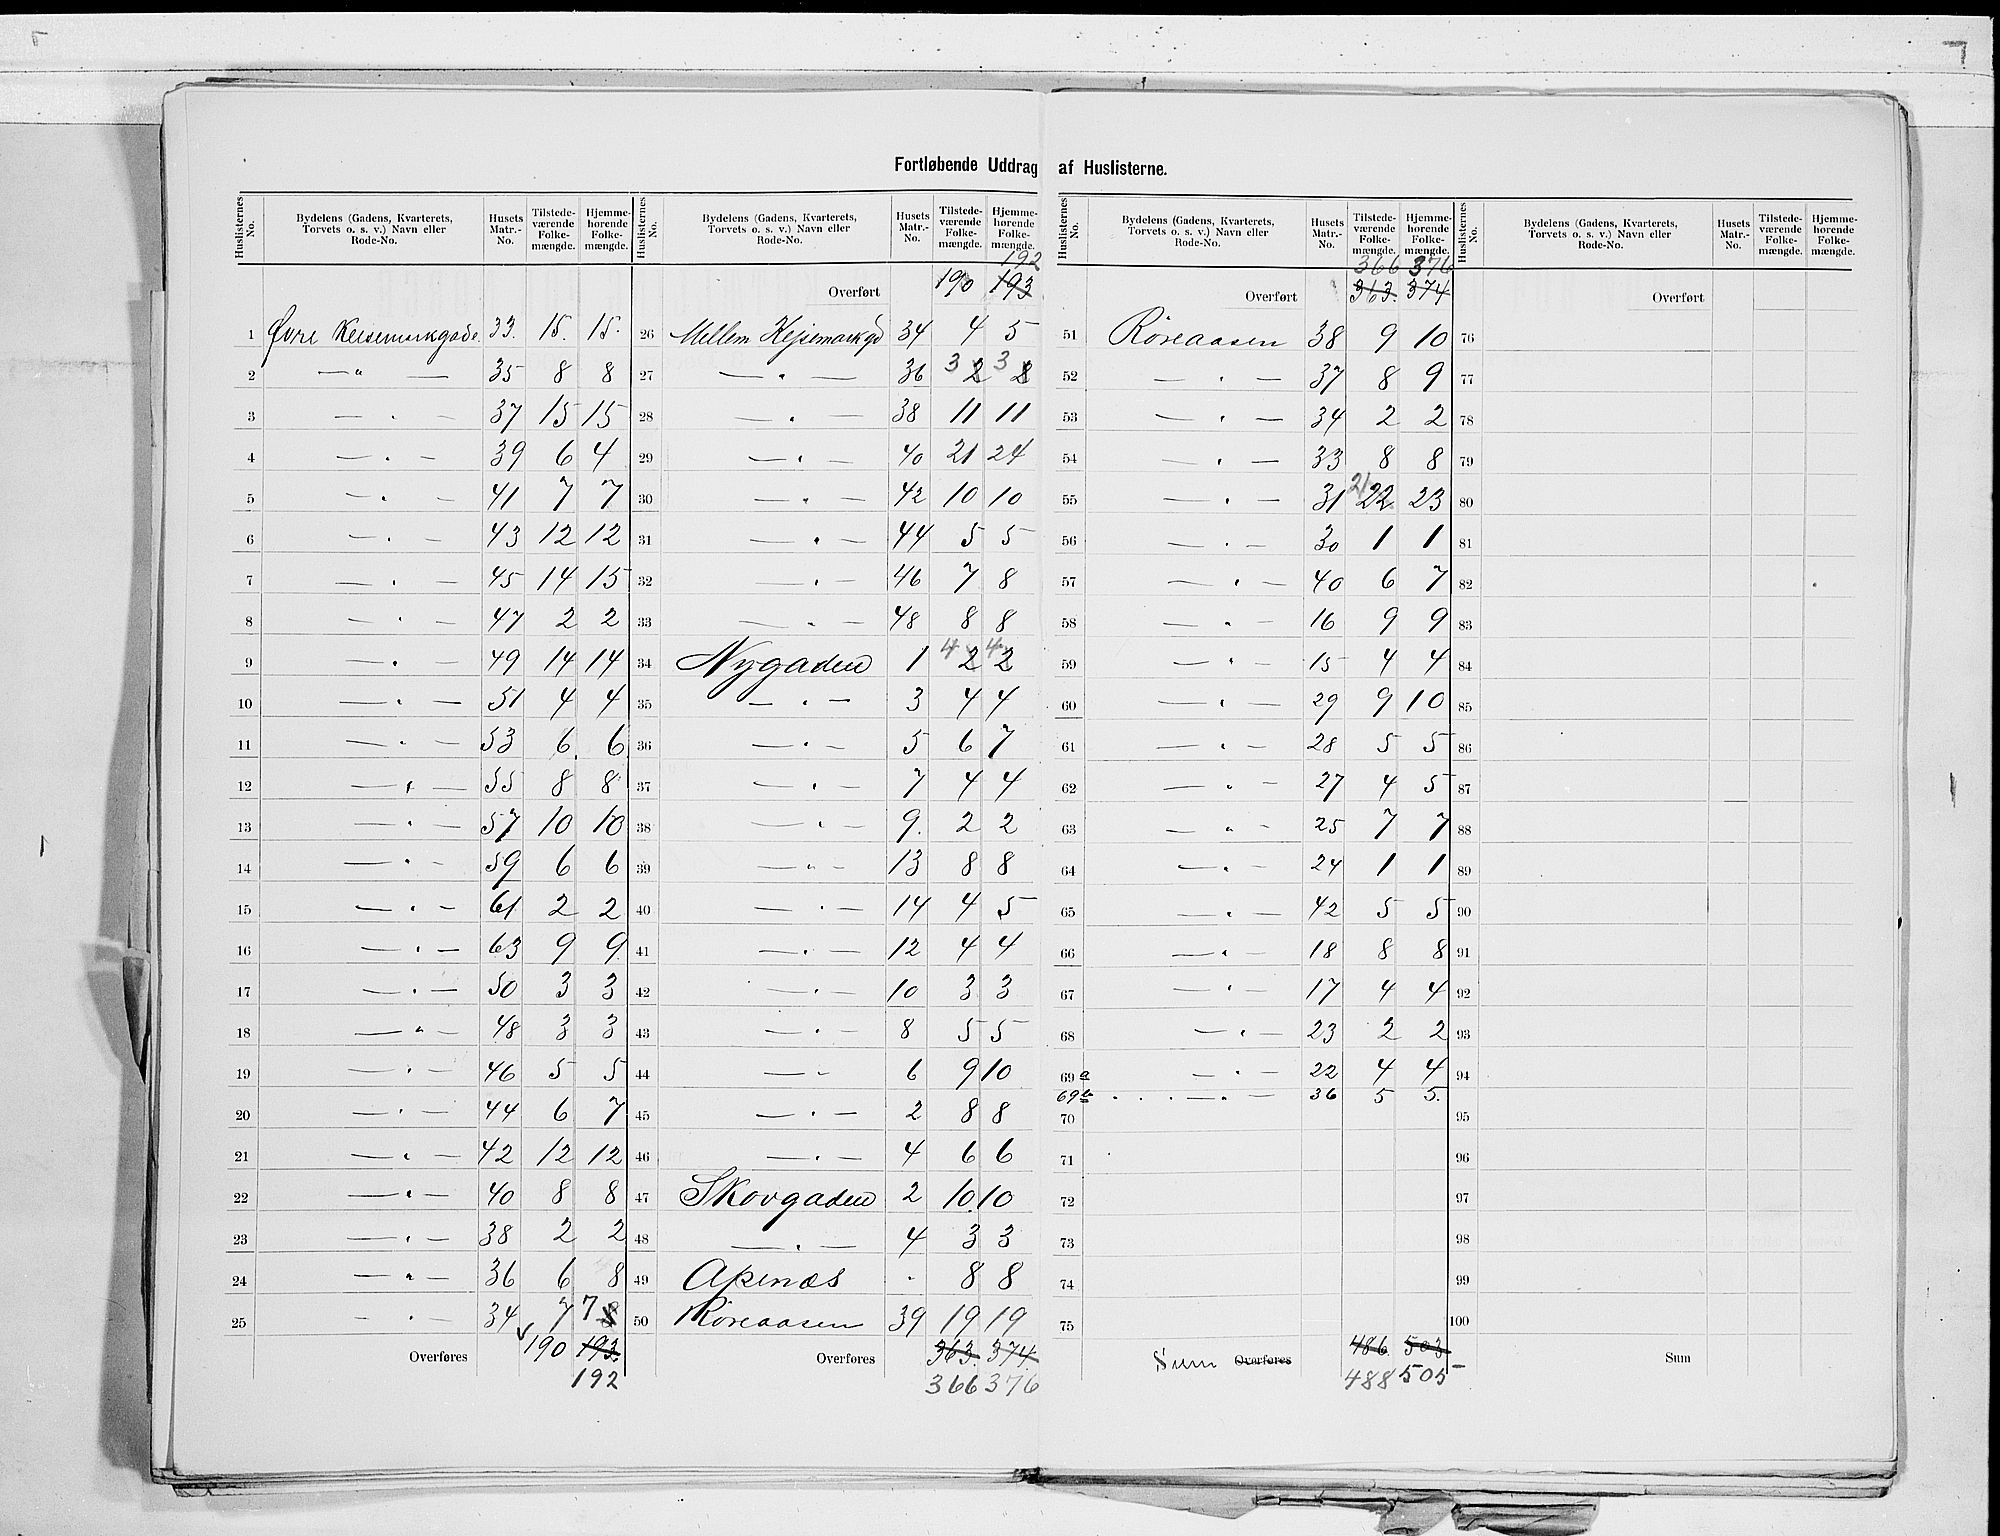 Fortløbende Uddrag af Huslisterne.
Huslisternes No. | Bydelens (Gadens, Kvarterets, Torvets o. s. v.) Navn eller Rode-No. | Husets Matr.-No. | Tilstede-værende Folke-mængde. | Hjemme-hørende Folke-mængde.
1 Øvre Keisemarkgade. 33. 15. 15.
2 — " — 35 8 8
3 — " — 37 15 15
4 — " — 39 6 4
5 — " — 41 7 7
6 — " — 43 12 12
7 — " — 45 14 15
8 — " — 47 2 2
9 — " — 49 14 14
10 — " — 51 4 4
11 — " — 53 6 6
12 — " — 55 8 8
13 — " — 57 10 10
14 — " — 59 6 6
15 — " — 61 2 2
16 — " — 63 9 9
17 — " — 50 3 3
18 — " — 48 3 3
19 — " — 46 5 5
20 — " — 44 6 7
21 — " — 42 12 12
22 — " — 40 8 8
23 — " — 38 2 2
24 — " — 36 6 8
25 - " - 34 7 7 8
Overføres 190 193.
192
Huslisternes No. | Bydelens (Gadens, Kvarterets, Torvets o. s. v.) Navn eller Rode-No. | Husets Matr.-No. | Tilstede-værende Folke-mængde. | Hjemme-hørende Folke-mængde.
192
Overført 190 193
26 Mellem Kejsemarkgd 34 4 5
27 — " — 36 3 2 3 2
28 — " — 38 11 11
29 — " — 40 21 24
30 — " — 42 10 10
31 — " — 44 5 5
32 — " — 46 7 8
33 — " — 48 8 8
34 Nygaden 1 4 2 4 2
35 — " — 3 4 4
36 — " — 5 6 7
37 — " — 7 4 4
38 — " — 9. 2 2
39 — " — 13 8 8
40 — " — 14 4 5
41 — " — 12 4 4
42 — " — 10 3 3
43 — " — 8 5 5
44 — " — 6 9 10
45 — " — 2 8 8
46 — " — 4 6 6
47 Skovgaden 2 10 10
48 — " — 4 3 3
49 Apenæs - 8 8
50 Røreaasen 39 19 19
Overføres 363. 374.
366 376
Huslisternes No. | Bydelens (Gadens, Kvarterets, Torvets o. s. v.) Navn eller Rode-No. | Husets Matr.-No. | Tilstede-værende Folke-mængde. | Hjemme-hørende Folke-mængde.
366 376
Overført 363. 374
51 Røreaasen 38 9 10
52 — " — 37 8 9
53 — " — 34 2 2
54 — " — 33 8 8
55 — " — 31 21 22 23
56 — " — 30 1 1
57 — " — 40 6 7
58 — " — 16 9 9
59 — " — 15 4 4
60 — " — 29 9 10
61 — " — 28 5 5
62 — " — 27 4 5
63 — " — 25 7 7
64 — " — 24 1 1
65 — " — 42 5 5
66 — " — 18 8 8
67 — " — 17 4 4
68 — " — 23 2 2
69 a — " — 22 4 4
69 b . . . — " — 36 5 5.
70
71
72
73
74
75
Sum Overføres 486. 503
488 505
Huslisternes No. | Bydelens (Gadens, Kvarterets, Torvets o. s. v.) Navn eller Rode-No. | Husets Matr.-No. | Tilstede-værende Folke-mængde. | Hjemme-hørende Folke-mængde.
Overført
76
77
78
79
80
81
82
83
84
85
86
87
88
89
90
91
92
93
94
95
96
97
98
99
100
Sum